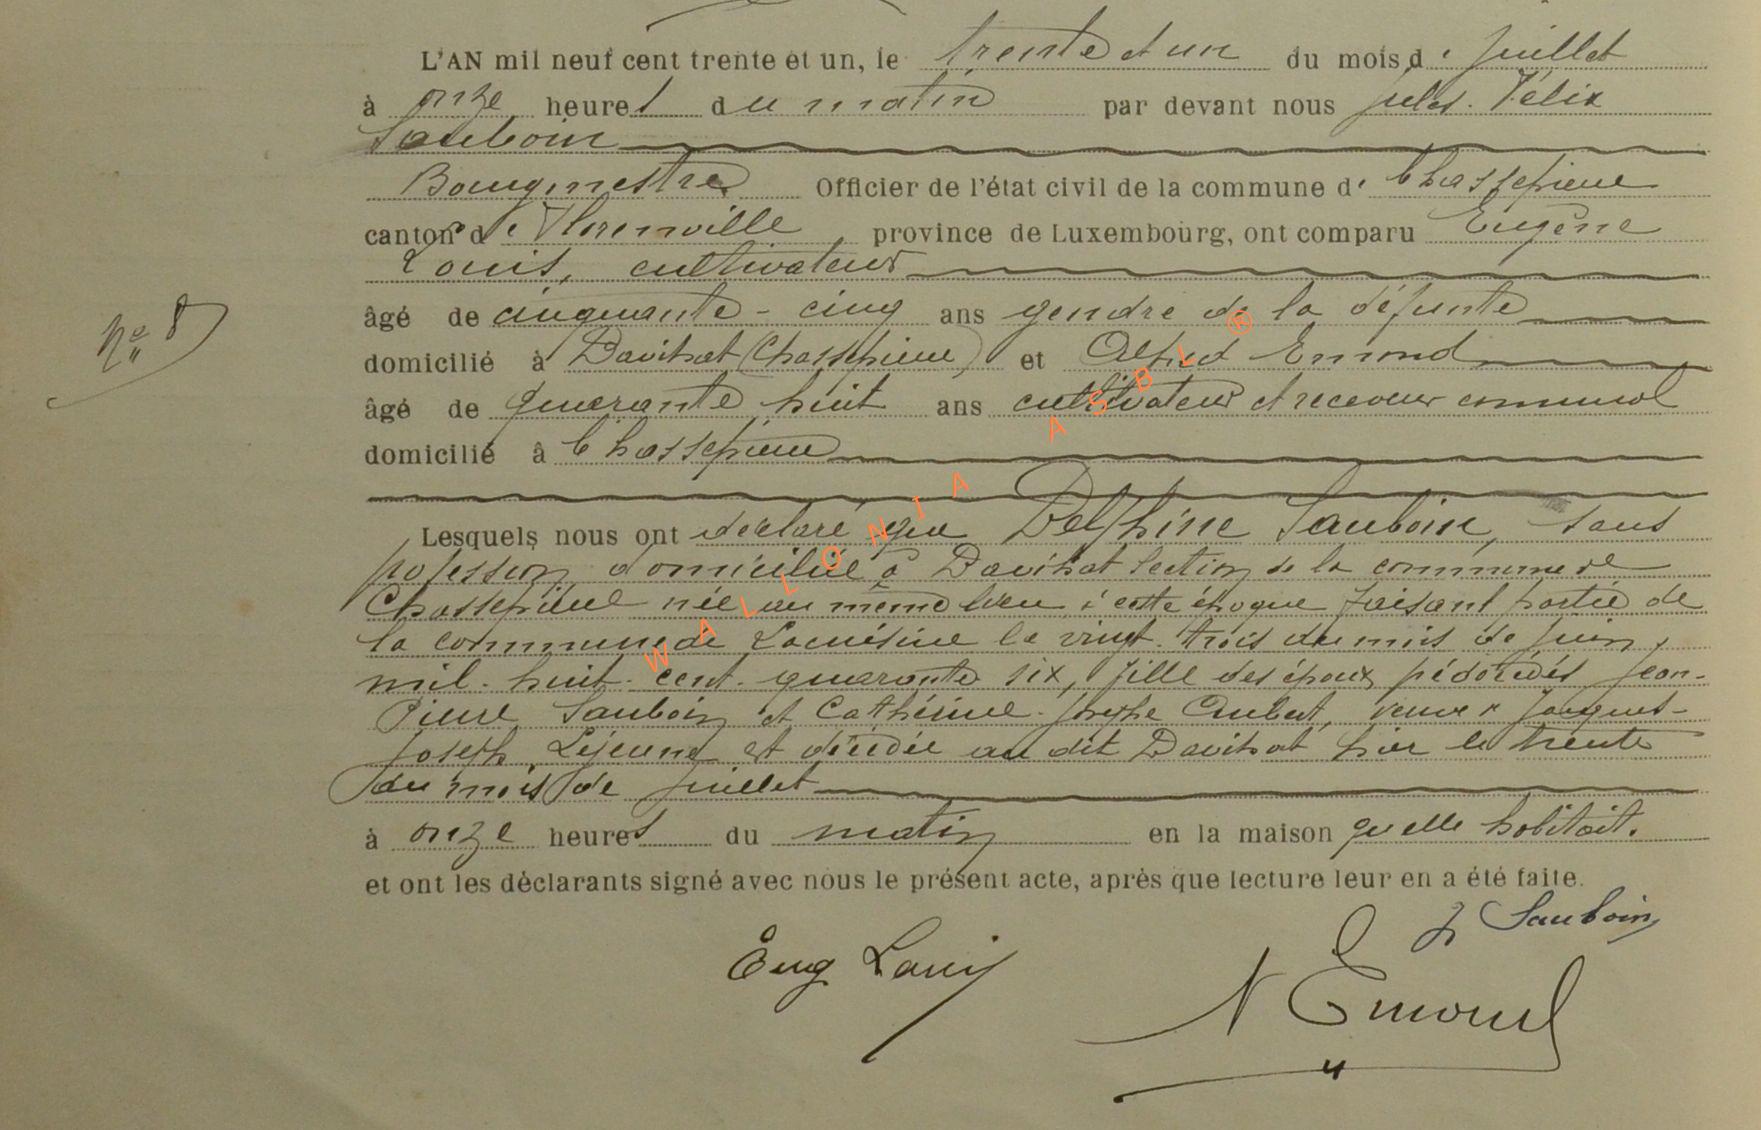 L'AN mil neuf cent trente et un, le trente et un du mois d e juillet
à onze heures du matin par devant nous Jules Félix
Sauboin
Bourgmestre Officier de l'état civil de la commune de Chassepierre
canton de Florenville, province de Luxembourg, ont comparu Eugène
Louis, cultivateur
âgé de cinquante-cinq ans gendre de la défunte
domicilié à Davihat (Chassepierre) et Alfred Emond
âgé de quarante huit ans cultivateur et receveur communal
domicilié à Chassepierre
Lesquels nous ont déclaré que Delphine Sauboin, sans
profession, domiciliée à Davihat section de la commune de
Chassepierre née au même lieu à cette époque faisant partie de
la commune de Lacuisine le vingt-trois du mois de juin,
mil-huit-cent-quarante six, fille des époux prédécédés Jean-
Pierre Sauboin et Cathérine-Josephe Aubert, veuve Jacques-
Joseph Lejeune et décédée au dit Davihat hier le trente
du mois de juillet
à onze heures du matin en la maison qu'elle habitait.
et ont les déclarants signé avec nous le présent acte, après que lecture leur en a été faite.
J Sauboin
Eug Louis
A Emond
N° 8
WALLONIA ASBL ®